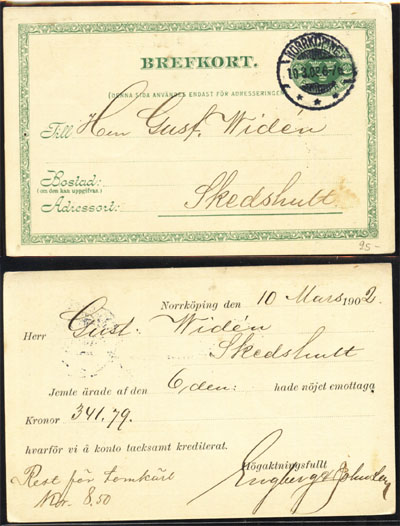 BREFKORT.
NORRKÖPING
10.3.02
(DENNA SIDA ANVÄNDES ENDAST FÖR ADRESSERINGEN)
Till Herr Gust. Widén
Bostad:
(om den kan uppgifvas)
Skedshult
Adressort:
95-
Norrköping den 10 Mars 1902.
Herr Gust. Widén
Skedshult
Jemte ärade af den 6 den: hade nöjet emottaga
Kronor 341,79.
hvarför vi å konto tacksamt krediterat.
Högaktningsfullt
Rest för tomkärl
Kr. 8,50
Engberg &